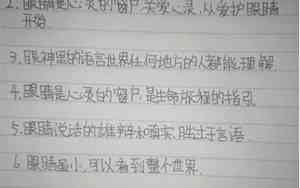 2.眼睛是心灵的窗户,关爱心灵,从爱护眼睛
开始.
3.眼神里的语言世界任何地方的人都能理解.
4.眼睛是心灵的窗户,是生命旅程的指引.
5.眼睛说话的雄辩和真实,胜过于言语
6.眼睛虽小,可以看到整个世界.